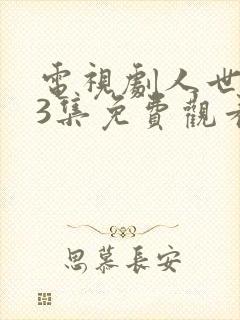 電視劇人世
3集免費觀看
思慕長安